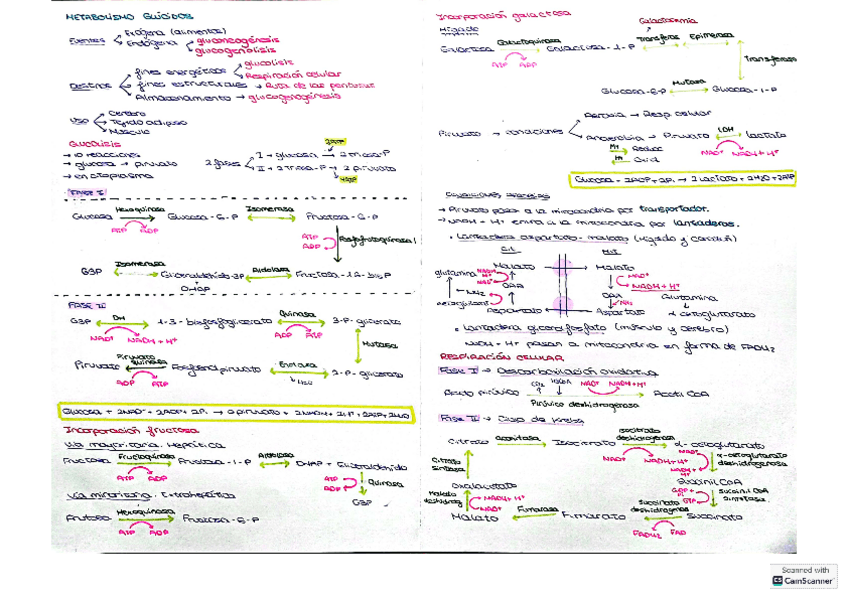 METABOLISMO GLÚCIDOS
Fuentes
Exógena (alimentos)
Endógena
gluconeogénesis
glucogenolisis
Destinos
fines energéticos
glucolisis
Respiración celular
fines estructurales → Ruta de las pentosas
Almacenamiento → glucogenogénesis
USO
Cerebro
Tejido adiposo
Músculo
GLUCÓLISIS
→ 10 reacciones
→ glucosa → piruvato
→ en citoplasma
2 fases
I → glucosa → 2 triosa-P
II → 2 triosa-P → 2 piruvato
FASE I
Glucosa Hexoquinasa Glucosa-6-P Isomerasa Fructosa-6-P
ATP ADP
ATP
ADP
Fosfofructoquinasa 1
G3P Isomerasa Gliceraldehído-3P Aldolasa Fructosa-1,6-bisP
DHAP
FASE II
G3P DH 1-3-bisfosfoglicerato Quinasa 3-P-glicerato
NAD+ NADH + H+ ADP ATP
Mutasa
Piruvato Piruvato quinasa Fosfoenolpiruvato Enolasa 2-P-glicerato
ADP ATP H2O
Glucosa + 2NAD+ + 2ADP + 2Pi → 2 piruvato + 2NADH + 2H+ + 2ATP + 2H2O
Incorporación fructosa
Vía mayoritaria. Hepática
Fructosa Fructoquinasa Fructosa-1-P Aldolasa DHAP + Gliceraldehído
ATP ADP
ATP
ADP
Quinasa
G3P
Vía minoritaria. Extrahepática
Fructosa Hexoquinasa Fructosa-6-P
ATP ADP
Incorporación galactosa
Hígado
Galactosemia
Galactosa Galactoquinasa Galactosa-1-P Transferasa Epimerasa
ATP ADP
Transferasa
Glucosa-6-P Mutasa Glucosa-1-P
Piruvato → condiciones
Aerobia → Resp celular
Anaerobia → Piruvato LDH lactato
NAD+ NADH + H+
Glucosa + 2ADP + 2Pi → 2 lactato + 2H2O + 2ATP
→ Piruvato pasa a la mitocondria por transportador.
→ NADH + H+ entra a la mitocondria por lanzaderas.
• Lanzadera aspartato-malato (hígado y corazón)
Cit. Mit.
Malato Malato
NAD+
NADH + H+
OAA OAA
NH2
Glutamina
Aspartato Aspartato
α cetoglutarato
• Lanzadera glicerofosfato (músculo y cerebro)
NADH + H+ pasan a mitocondria en forma de FADH2
RESPIRACIÓN CELULAR
Fase I → Descarboxilación oxidativa
CO2 NAD+ NADH+H+
Ácido pirúvico Acetil CoA
Pirúvico deshidrogenasa
Fase II → Ciclo de Krebs
Citrato aconitasa Isocitrato isocitrato deshidrogenasa α-cetoglutarato
NAD+ NADH+H+
NAD+
NADH+H+
α-cetoglutarato deshidrogenasa
Citrato sintasa
Succinil CoA
GDP
GTP
Succinil CoA sintetasa
Oxalacetato
Malato deshidrog
NADH+H+
NAD+
Malato Fumarasa Fumarato Succinato deshidrogenasa Succinato
FADH2 FAD
Scanned with
CS CamScanner